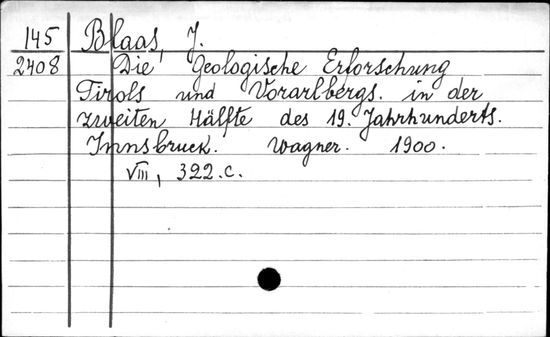 145 Blaas, J.
2408 Die Geologische Erforschung
Tirols und Vorarlbergs. in der
zweiten Hälfte des 19. Jahrhunderts.
Innsbruck. Wagner. 1900.
VIII, 322.c.